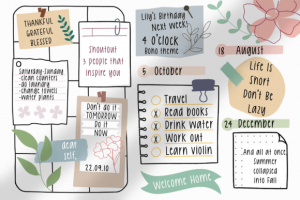 THANKFUL
GRATEFUL
BLESSED
Saturday-Sunday
- clean counters
- do laundry
- change towels
- water plants
Shoutout
3 people that
inspire you
Don't do it
TOMORROW
Do it
NOW
22.09.10
dear
self,
Lily's Birthday
Next week!
4 O'clock
BOHO THEME
5 October
Travel
Read books
Drink water
Work out
Learn violin
Welcome Home
18 August
Life is
Short
Don't Be
Lazy
24 December
And all at once,
Summer
collapsed
into Fall